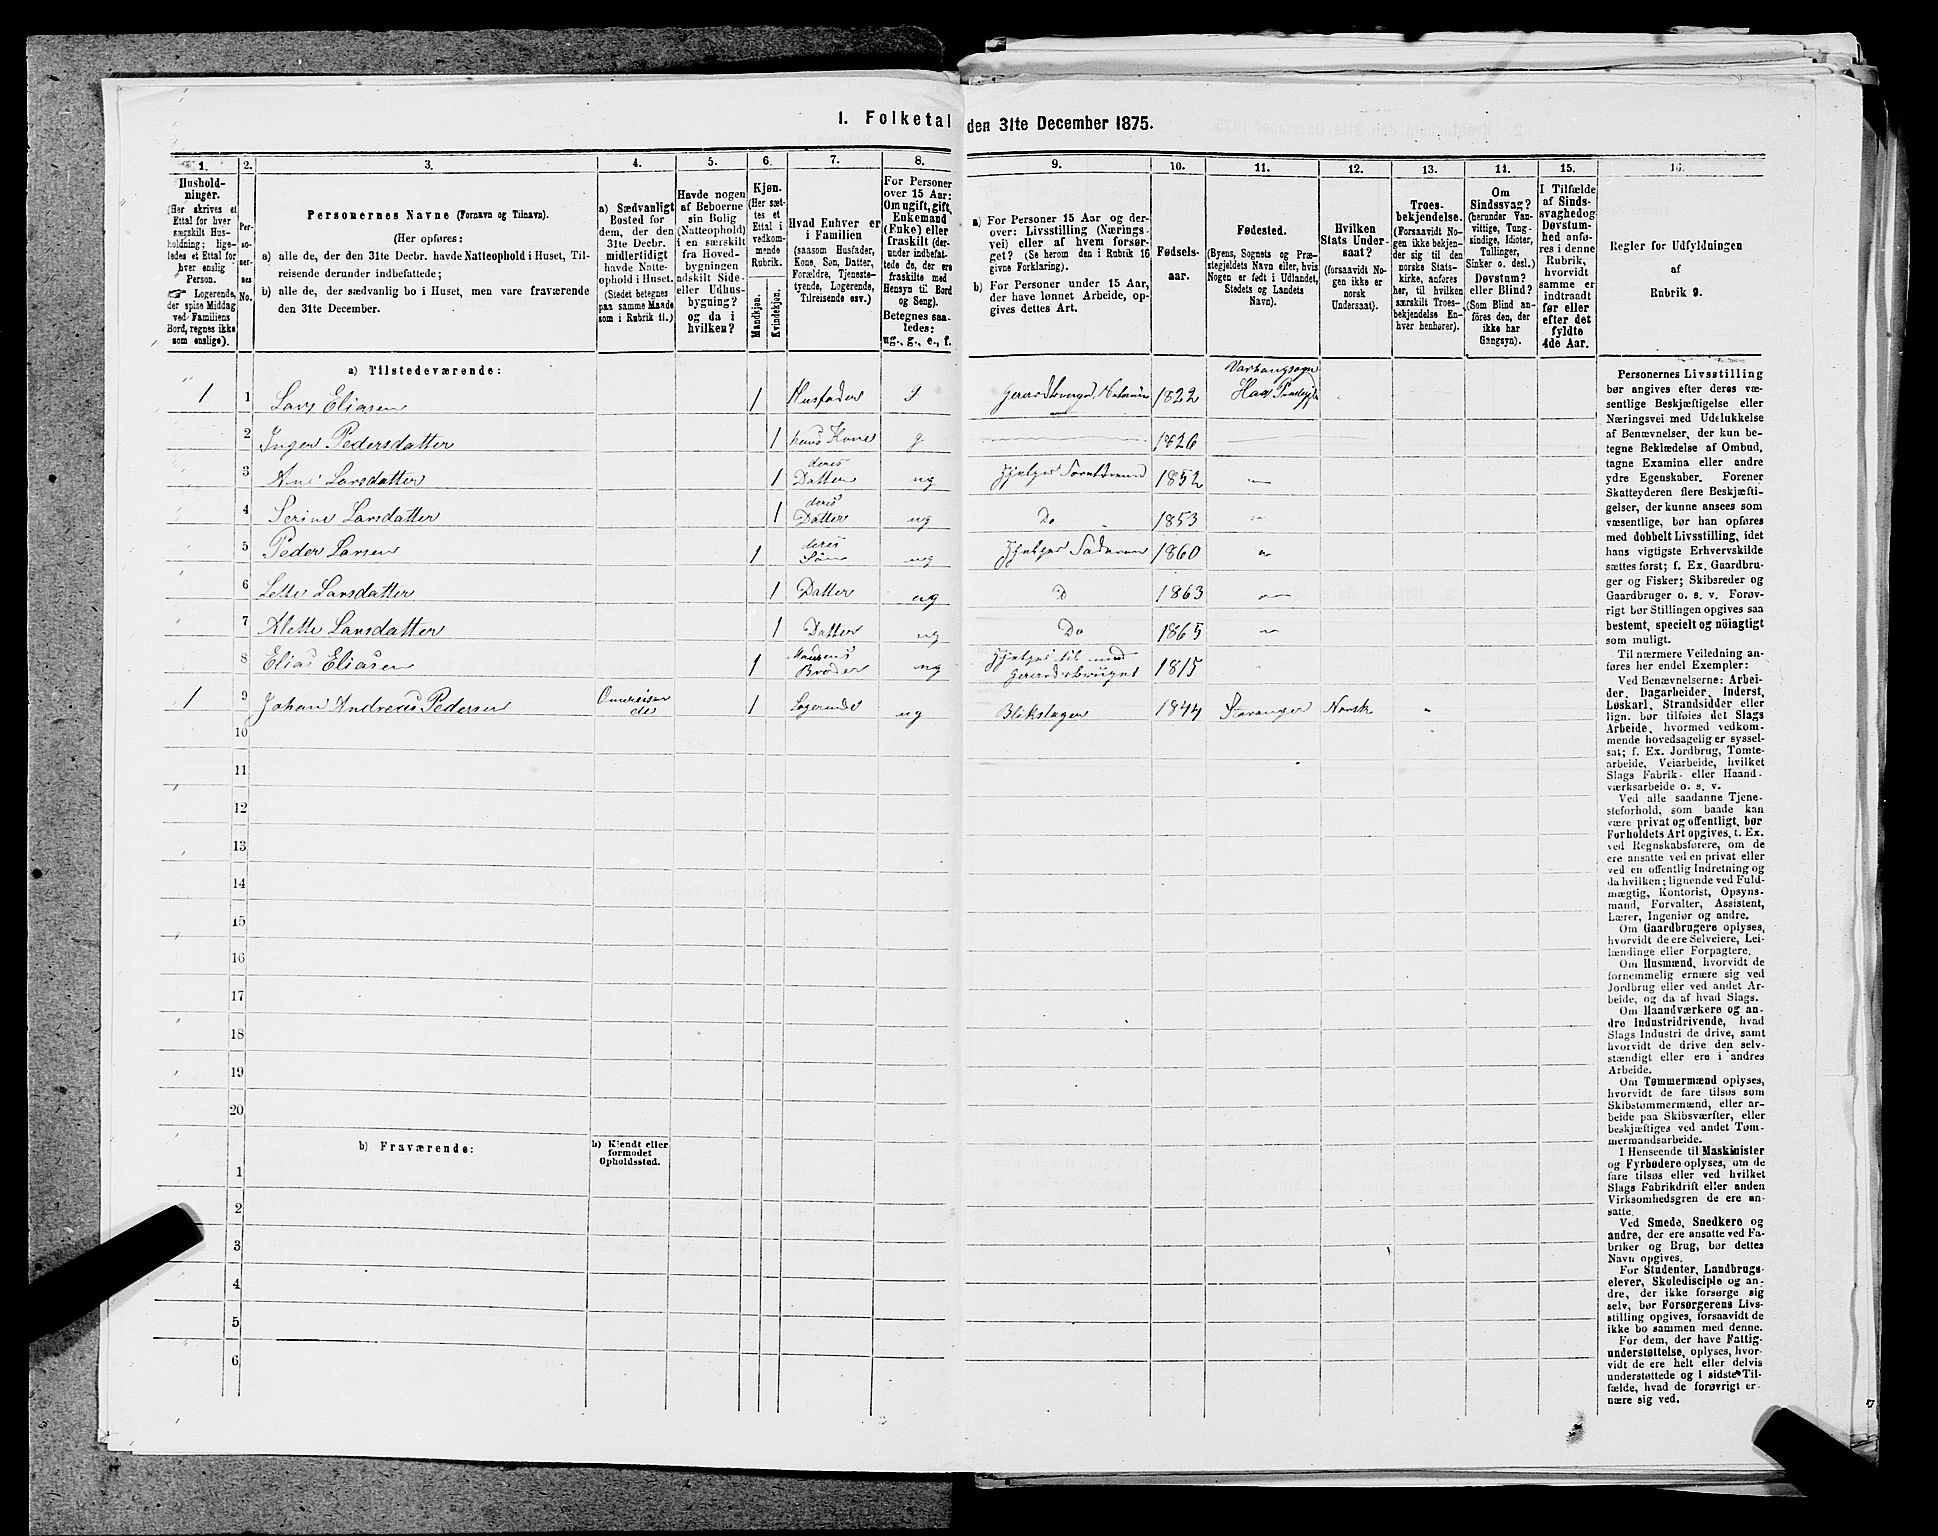 1. Folketal den 31te December 1875.
1. 2. 3. 4. 5. 6. 7. 8. 9. 10. 11. 12. 13. 14. 15. 16.
Hushold-
ninger.
(Her skrives et
Ettal for hver
særskilt Hus-
holdning; lige-
ledes et Ettal for
hver enslig
Person.
☞ Logerende,
der spise Middag
ved Familiens
Bord, regnes ikke
som enslige).
Per-
so-
ner-
nes
No.
Personernes Navne (Fornavn og Tilnavn).
(Her opføres:
a) alle de, der den 31te Decbr. havde Natteophold i Huset, Til-
reisende derunder indbefattede;
b) alle de, der sædvanlig bo i Huset, men vare fraværende
den 31te December.
a) Sædvanligt
Bosted for
dem, der den
31te Decbr.
midlertidigt
havde Natte-
ophold i Huset.
(Stedet betegnes
paa samme Maade
som i Rubrik 11.)
Havde nogen
af Beboerne
sin Bolig
(Natteophold)
i en særskilt
fra Hoved-
bygningen
adskilt Side-
eller Udhus-
bygning?
og da i
hvilken?
Kjøn.
(Her sæt-
tes et
Ettal i
vedkom-
mende
Rubrik.
Mandkjøn.
Kvindekjøn.
Hvad Enhver er
i Familien
(saasom Husfader,
Kone, Søn, Datter,
Forældre, Tjeneste-
tyende, Logerende,
Tilreisende osv.)
For Personer
over 15 Aar:
Om ugift, gift,
Enkemand
(Enke) eller
fraskilt (der-
under indbefat-
tede de, der ere
fraskilte med
Hensyn til Bord
og Seng).
Betegnes saa-
ledes:
ug., g., e., f.
a) For Personer 15 Aar og der-
over: Livsstilling (Nærings-
vei) eller af hvem forsør-
get? (Se herom den i Rubrik 16
givne Forklaring).
b) For Personer under 15 Aar,
der have lønnet Arbeide, op-
gives dettes Art.
Fødsels-
aar.
Fødested.
(Byens, Sognets og Præ-
stegjeldets Navn eller, hvis
Nogen er født i Udlandet,
Stedets og Landets
Navn).
Hvilken
Stats Under-
saat?
(forsaavidt No-
gen ikke er
norsk
Undersaat).
Troes-
bekjendelse.
(Forsaavidt No-
gen ikke bekjen-
der sig til den
norske Stats-
kirke, anføres
her, til hvilken
særskilt Troes-
bekjendelse En-
hver henhører).
Om
Sindssvag?
(herunder Van-
vittige, Tung-
sindige, Idioter,
Tullinger,
Sinker o. desl.)
Døvstum?
eller Blind?
(Som Blind an-
føres den, der
ikke har
Gangsyn).
I Tilfælde
af Sinds-
svaghed og
Døvstum-
hed anfø-
res i denne
Rubrik,
hvorvidt
samme er
indtraadt
før eller
efter det
fyldte
4de Aar.
Regler for Udfyldningen
af
Rubrik 9.
a) Tilstedeværende:
1 1 Lars Eliasen 1 Husfader 1822 Haa
2 Inger Pedersdatter 1 hans Kone g 1826
3 Ane Larsdatter 1 deres Datter ug 1852
4 Serine Larsdatter 1 deres Datter ug Do 1853
5 Peder Larsen 1 deres Søn ug 1860
6 Larsdatter 1 Datter ug D 1863
7 Larsdatter 1 Datter ug Do 1865
8 Elias Eliasen 1 Mandens Broder ug 1815
1 9 Johan Andreas Pedersen Omreisende 1 Logerende ug Blikslager 1844 Stavanger Norsk
10
11
12
13
14
15
16
17
18
19
20
b) Fraværende:
b) Kjendt eller
formodet
Opholdssted.
1
2
3
4
5
6
Personernes Livsstilling
bør angives efter deres væ-
sentlige Beskjæftigelse eller
Næringsvei med Udelukkelse
af Benævnelser, der kun be-
tegne Beklædelse af Ombud,
tagne Examina eller andre
ydre Egenskaber. Forener
Skatteyderen flere Beskjæfti-
gelser, der kunne ansees som
væsentlige, bør han opføres
med dobbelt Livsstilling, idet
hans vigtigste Erhvervskilde
sættes først; f. Ex. Gaardbru-
ger og Fisker; Skibsreder og
Gaardbruger o. s. v. Forøv-
rigt bør Stillingen opgives saa
bestemt, specielt og nöiagtigt
som muligt.
Til nærmere Veiledning an-
føres her endel Exempler:
Ved Benævnelserne: Arbei-
der, Dagarbeider, Inderst,
Løskarl, Strandsidder eller
lign. bør tilføies det Slags
Arbeide, hvormed vedkom-
mende hovedsagelig er syssel-
sat; f. Ex. Jordbrug, Tomte-
arbeide, Veiarbeide, hvilket
Slags Fabrik- eller Haand-
værksarbeide o. s. v.
Ved alle saadanne Tjene-
steforhold, som baade kan
være privat og offentligt, bør
Forholdets Art opgives, t. Ex.
ved Regnskabsførere, om de
ere ansatte ved en privat eller
ved en offentlig Indretning og
da hvilken; lignende ved Fuld-
mægtig, Kontorist, Opsyns-
mand, Forvalter, Assistent,
Lærer, Ingeniør og andre.
Om Gaardbrugere oplyses,
hvorvidt de ere Selveiere, Lei-
lændinge eller Forpagtere.
Om Husmænd, hvorvidt de
fornemmelig ernære sig ved
Jordbrug eller ved andet Ar-
beide, og da af hvad Slags.
Om Haandværkere og an-
dre Industridrivende, hvad
Slags Industri de drive, samt
hvorvidt de drive den selv-
stændigt eller ere i andres
Arbeide.
Om Tømmermænd oplyses,
hvorvidt de fare tilsøs som
Skibstømmermænd, eller ar-
beide paa Skibsværfter, eller
beskjæftiges ved andet Tøm-
mermandsarbeide.
I Henseende til Maskinister
og Fyrbødere oplyses, om de
fare tilsøs eller ved hvilket
Slags Fabrikdrift eller anden
Virksomhedsgren de ere an-
satte.
Ved Smede, Snedkere og
andre, der ere ansatte ved Fa-
briker og Brug, bør dettes
Navn opgives.
For Studenter, Landbrugs-
elever, Skoledisciple og an-
dre, der ikke forsørge sig
selv, bør Forsørgerens Livs-
stilling opgives, forsaavidt de
ikke bo sammen med denne.
For dem, der have Fattig-
understøttelse, oplyses, hvor-
vidt de ere helt eller delvis
understøttede og i sidste Til-
fælde, hvad de forøvrigt er-
nære sig ved.